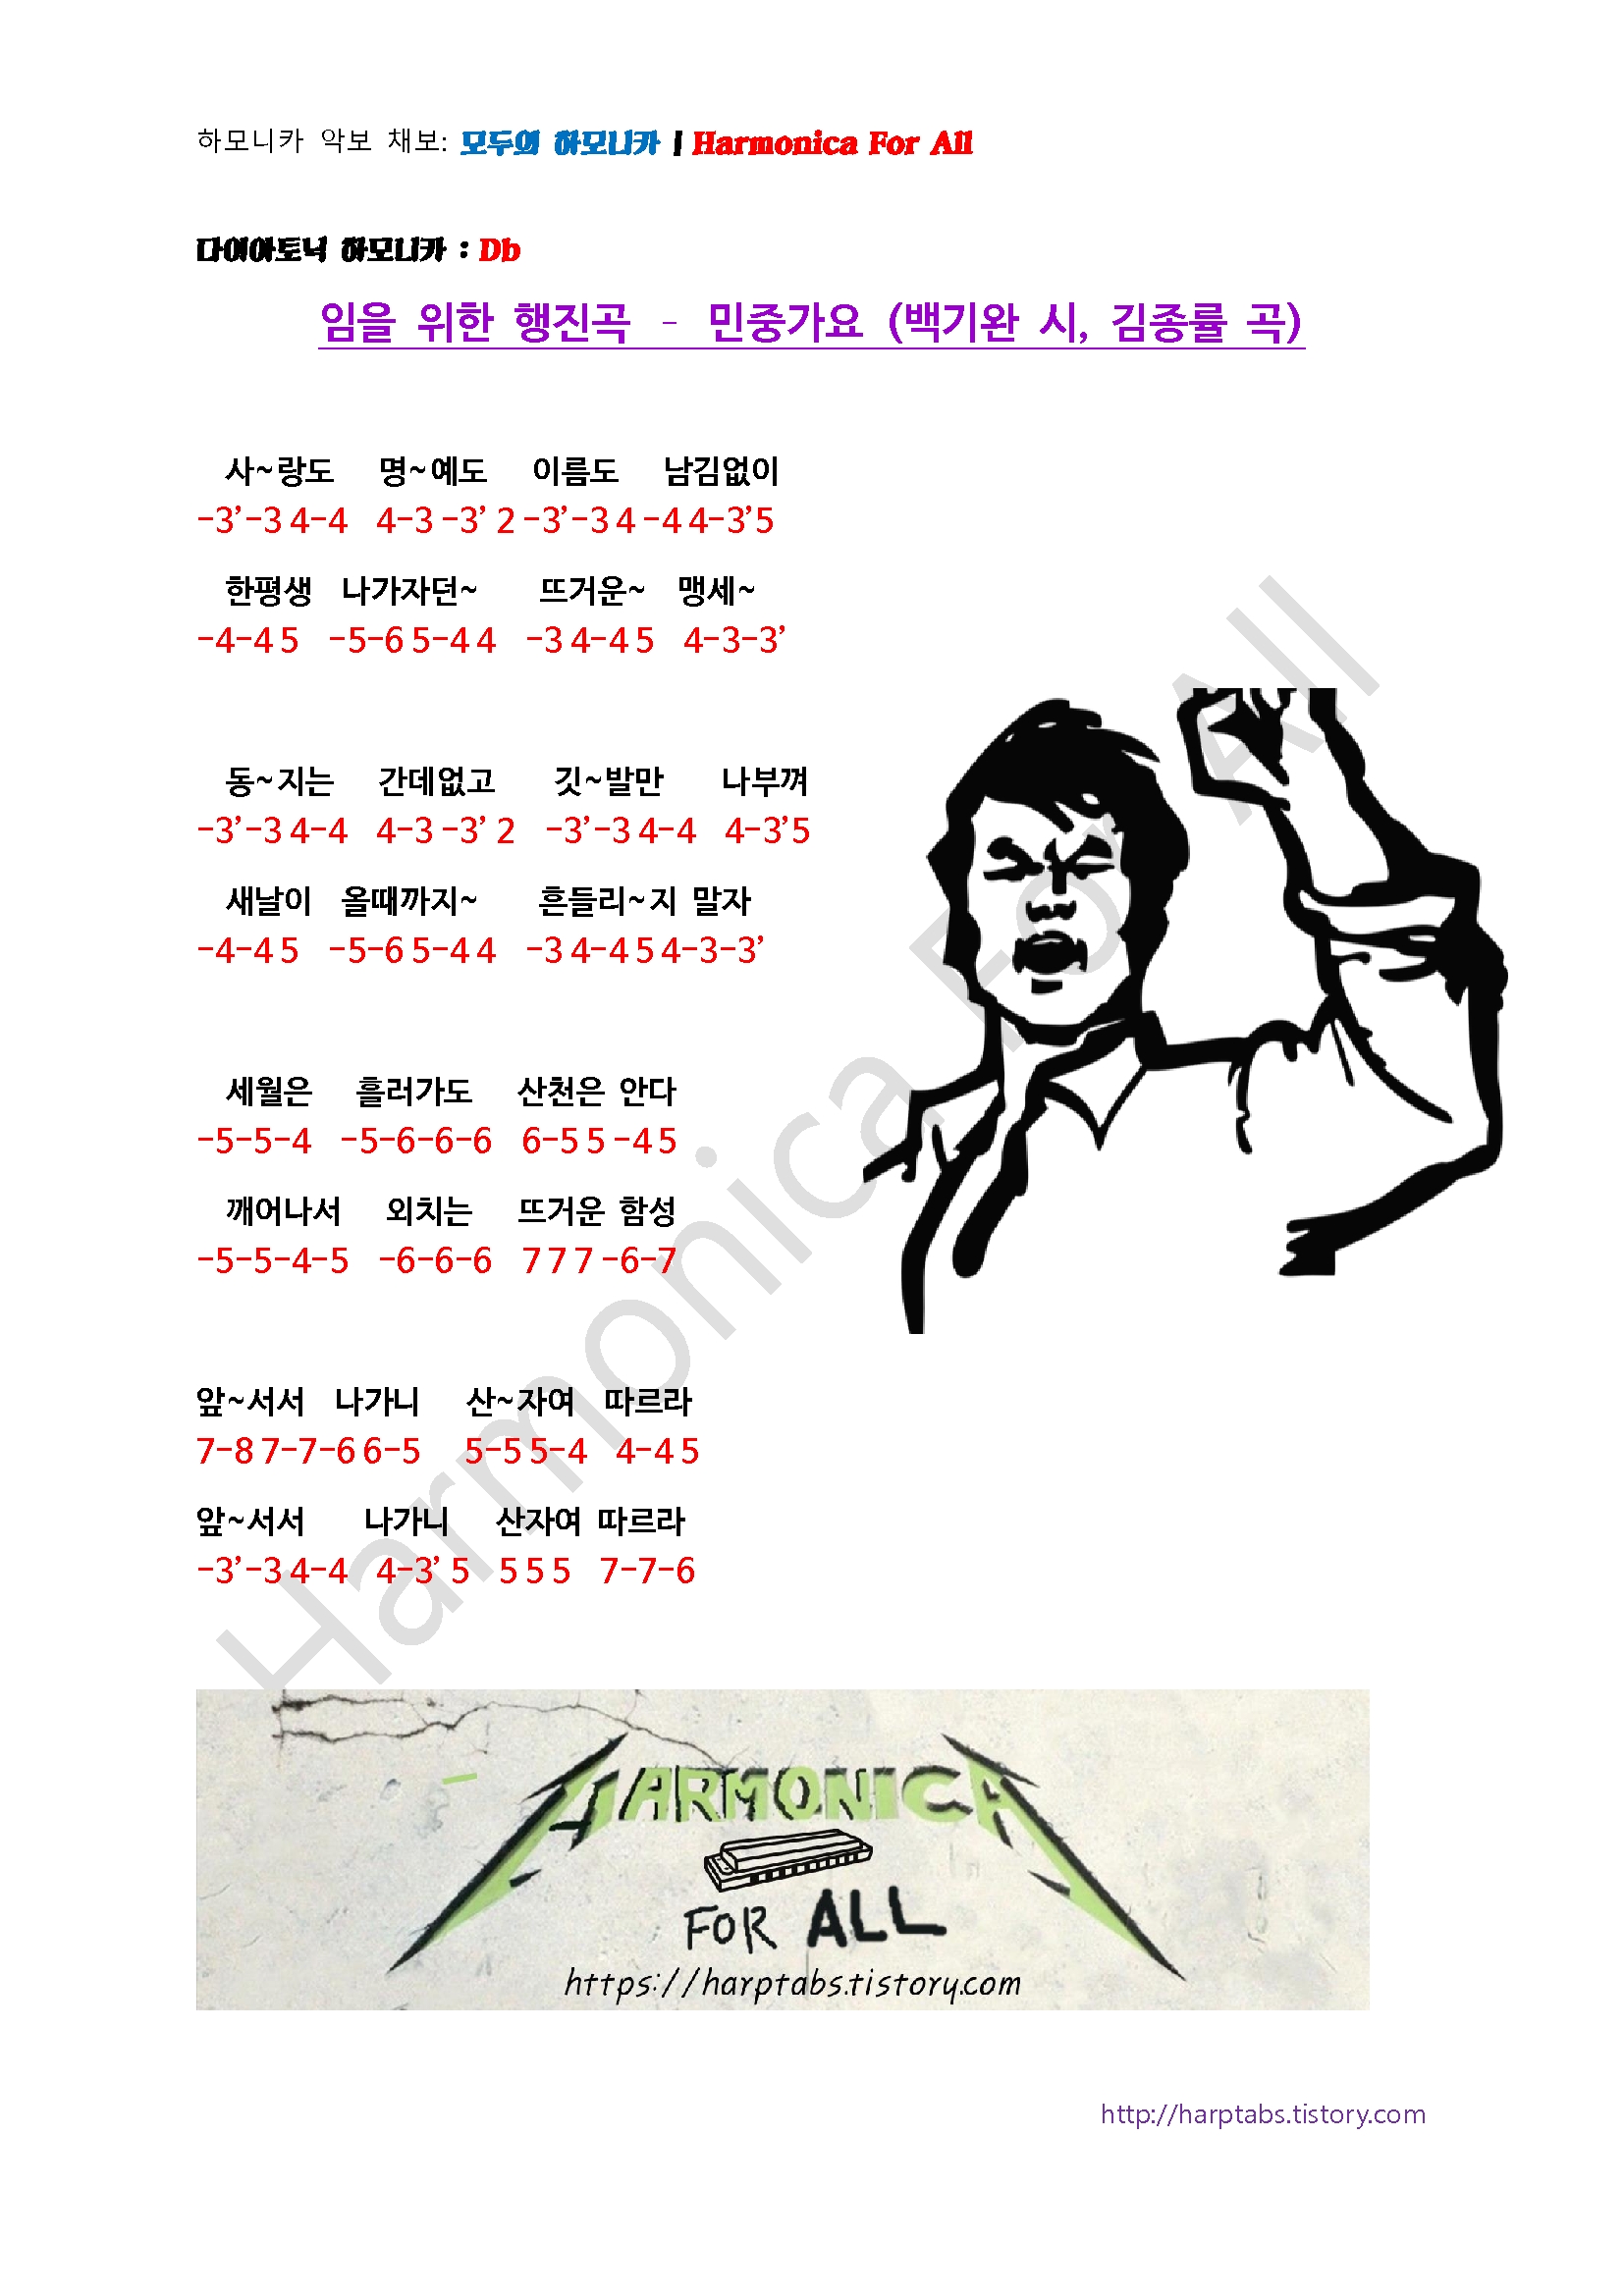 하모니카 악보 채보: 모두의 하모니카 | Harmonica For All
다이아토닉 하모니카 : Db
임을 위한 행진곡 - 민중가요 (백기완 시, 김종률 곡)
사~랑도 명~예도 이름도 남김없이
-3’-3 4-4 4-3 -3’ 2 -3’-3 4 -4 4-3’5
한평생 나가자던~ 뜨거운~ 맹세~
-4-4 5 -5-6 5-4 4 -3 4-4 5 4-3-3’
동~지는 간데없고 깃~발만 나부껴
-3’-3 4-4 4-3 -3’ 2 -3’-3 4-4 4-3’5
새날이 올때까지~ 흔들리~지 말자
-4-4 5 -5-6 5-4 4 -3 4-4 5 4-3-3’
세월은 흘러가도 산천은 안다
-5-5-4 -5-6-6-6 6-5 5 -4 5
깨어나서 외치는 뜨거운 함성
-5-5-4-5 -6-6-6 7 7 7 -6-7
앞~서서 나가니 산~자여 따르라
7-8 7-7-6 6-5 5-5 5-4 4-4 5
앞~서서 나가니 산자여 따르라
-3’-3 4-4 4-3’ 5 5 5 5 7-7-6
Harmonica For All
HARMONICA
FOR ALL
https://harptabs.tistory.com
http://harptabs.tistory.com